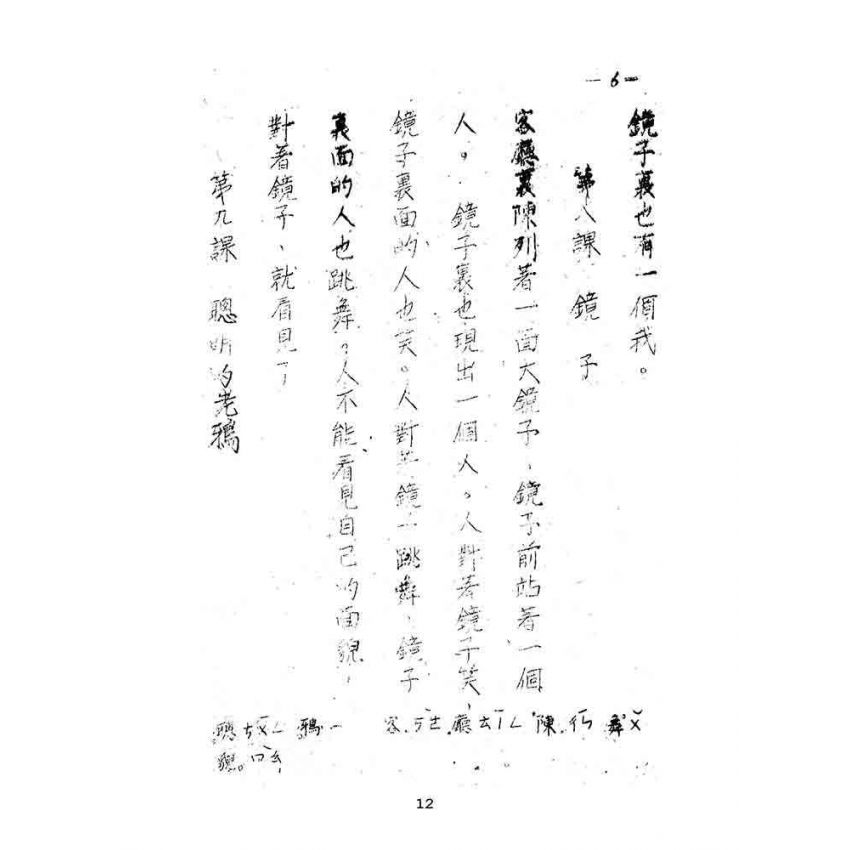 —6—
鏡子裏也有一個我。
第八課 鏡子
客廳裏陳列著一面大鏡子,鏡子前站着一個
人。鏡子裏也現出一個人。人對着鏡子笑,
鏡子裏面的人也笑。人對着鏡子跳舞,鏡子
裏面的人也跳舞。人不能看見自己的面貌,
對着鏡子、就看見了
第九課 聰明的老鴉
舞ㄨˇ
陳
廳ㄊㄧㄥ
客
鴉
聰ㄘㄨㄥ
貌ㄇㄠˋ
12